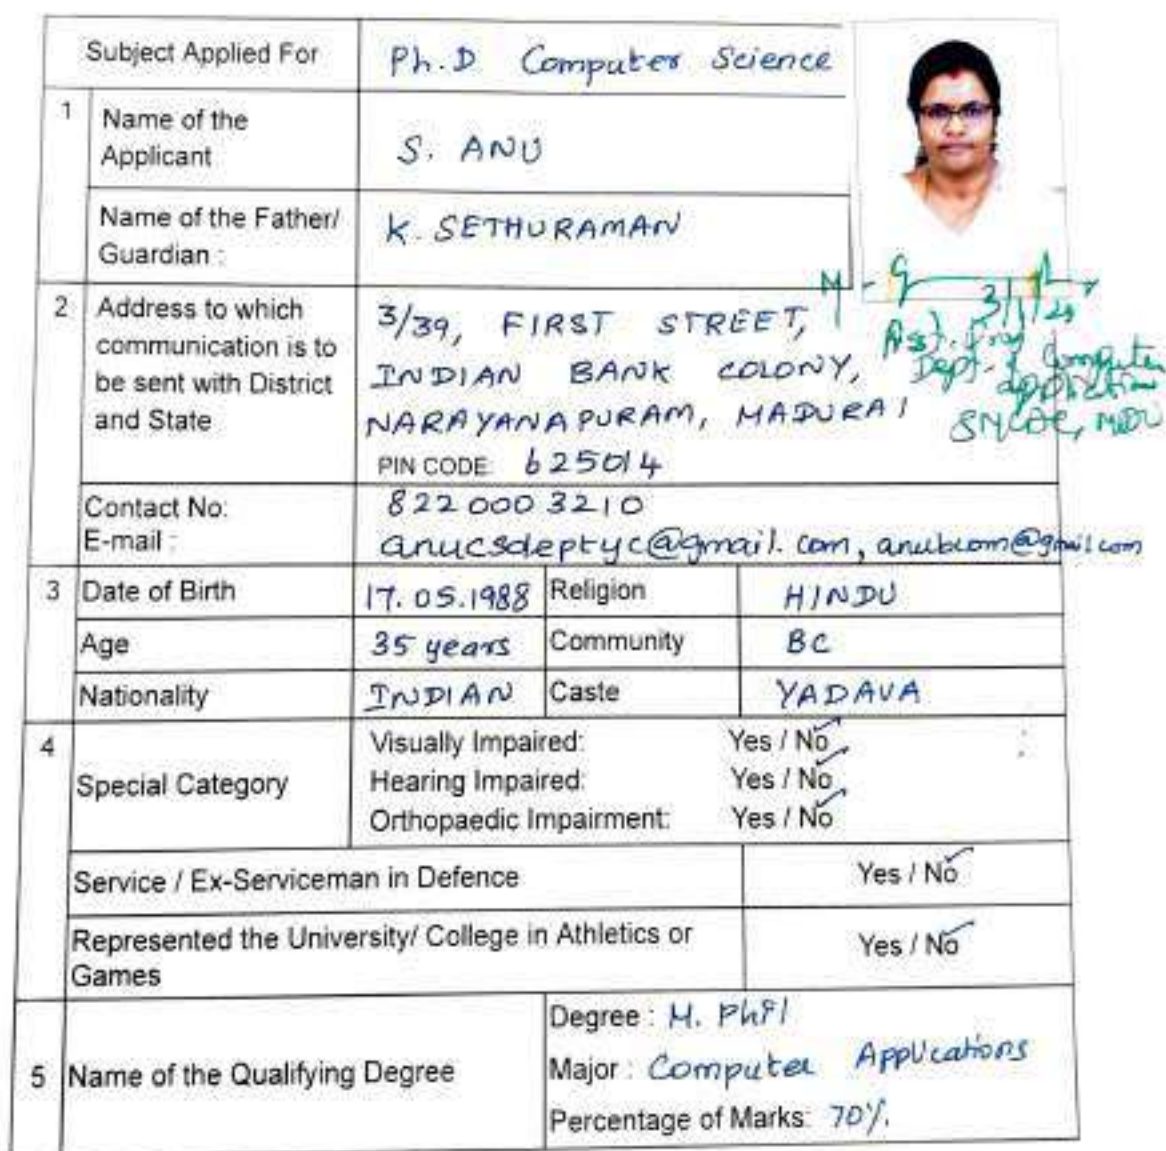 Subject Applied For Ph.D Computer Science
1 Name of the Applicant S. ANU
Name of the Father/ Guardian : K. SETHURAMAN
2 Address to which communication is to be sent with District and State
3/39, FIRST STREET,
INDIAN BANK COLONY,
NARAYANAPURAM, MADURAI
PIN CODE: 625014
Asst. Prof
Dept. of Computer
Application
Contact No: 822 000 3210
E-mail : anucsdeptyc@gmail.com, anubcom@gmail.com
3 Date of Birth 17.05.1988 Religion HINDU
Age 35 years Community BC
Nationality INDIAN Caste YADAVA
4 Special Category
Visually Impaired: Yes / No
Hearing Impaired: Yes / No
Orthopaedic Impairment: Yes / No
Service / Ex-Serviceman in Defence Yes / No
Represented the University/ College in Athletics or Games Yes / No
5 Name of the Qualifying Degree
Degree : M. Phil
Major : Computer Applications
Percentage of Marks: 70%